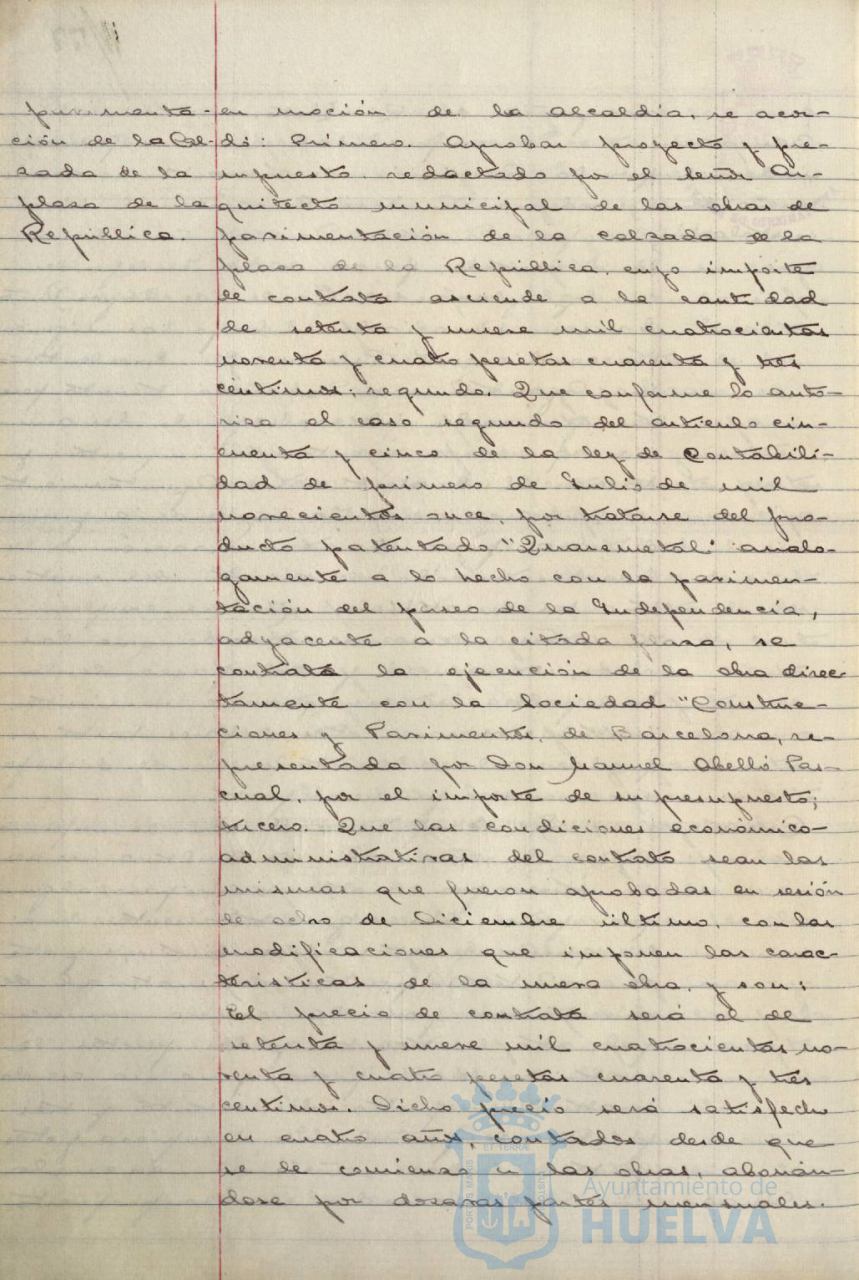 pavimenta-
ción de la Cal-
zada de la
plaza de la
República.
en moción de la Alcaldía, se acor-
dó: Primero. Aprobar proyecto y pre-
supuesto redactado por el señor Ar-
quitecto municipal de las obras de
pavimentación de la calzada de la
plaza de la República, cuyo importe
de contrata asciende a la cantidad
de setenta y nueve mil cuatrocientas
noventa y cuatro pesetas cuarenta y tres
céntimos; segundo. Que conforme lo auto-
riza el caso segundo del artículo cin-
cuenta y cinco de la ley de Contabili-
dad de primero de Julio de mil
novecientos once, por tratarse del pro-
ducto patentado "Quaremetal" analo-
gamente a lo hecho con la pavimen-
tación del paseo de la Independencia,
adyacente a la citada plaza, se
contrata la ejecución de la obra direc-
tamente con la Sociedad "Construc-
ciones y Pavimentos, de Barcelona, re-
presentada por Don Manuel Abelló Pas-
cual, por el importe de su presupuesto;
tercero. Que las condiciones económico-
administrativas del contrato sean las
mismas que fueron aprobadas en sesión
de ocho de Diciembre último, con las
modificaciones que imponen las carac-
terísticas de la nueva obra, y son:
El precio de contrata será el de
setenta y nueve mil cuatrocientas no-
venta y cuatro pesetas cuarenta y tres
centimos. Dicho precio será satisfecho
en cuatro años, contados desde que
se dé comienzo a las obras, abonán-
dose por dozavas partes mensuales.
Ayuntamiento de
HUELVA